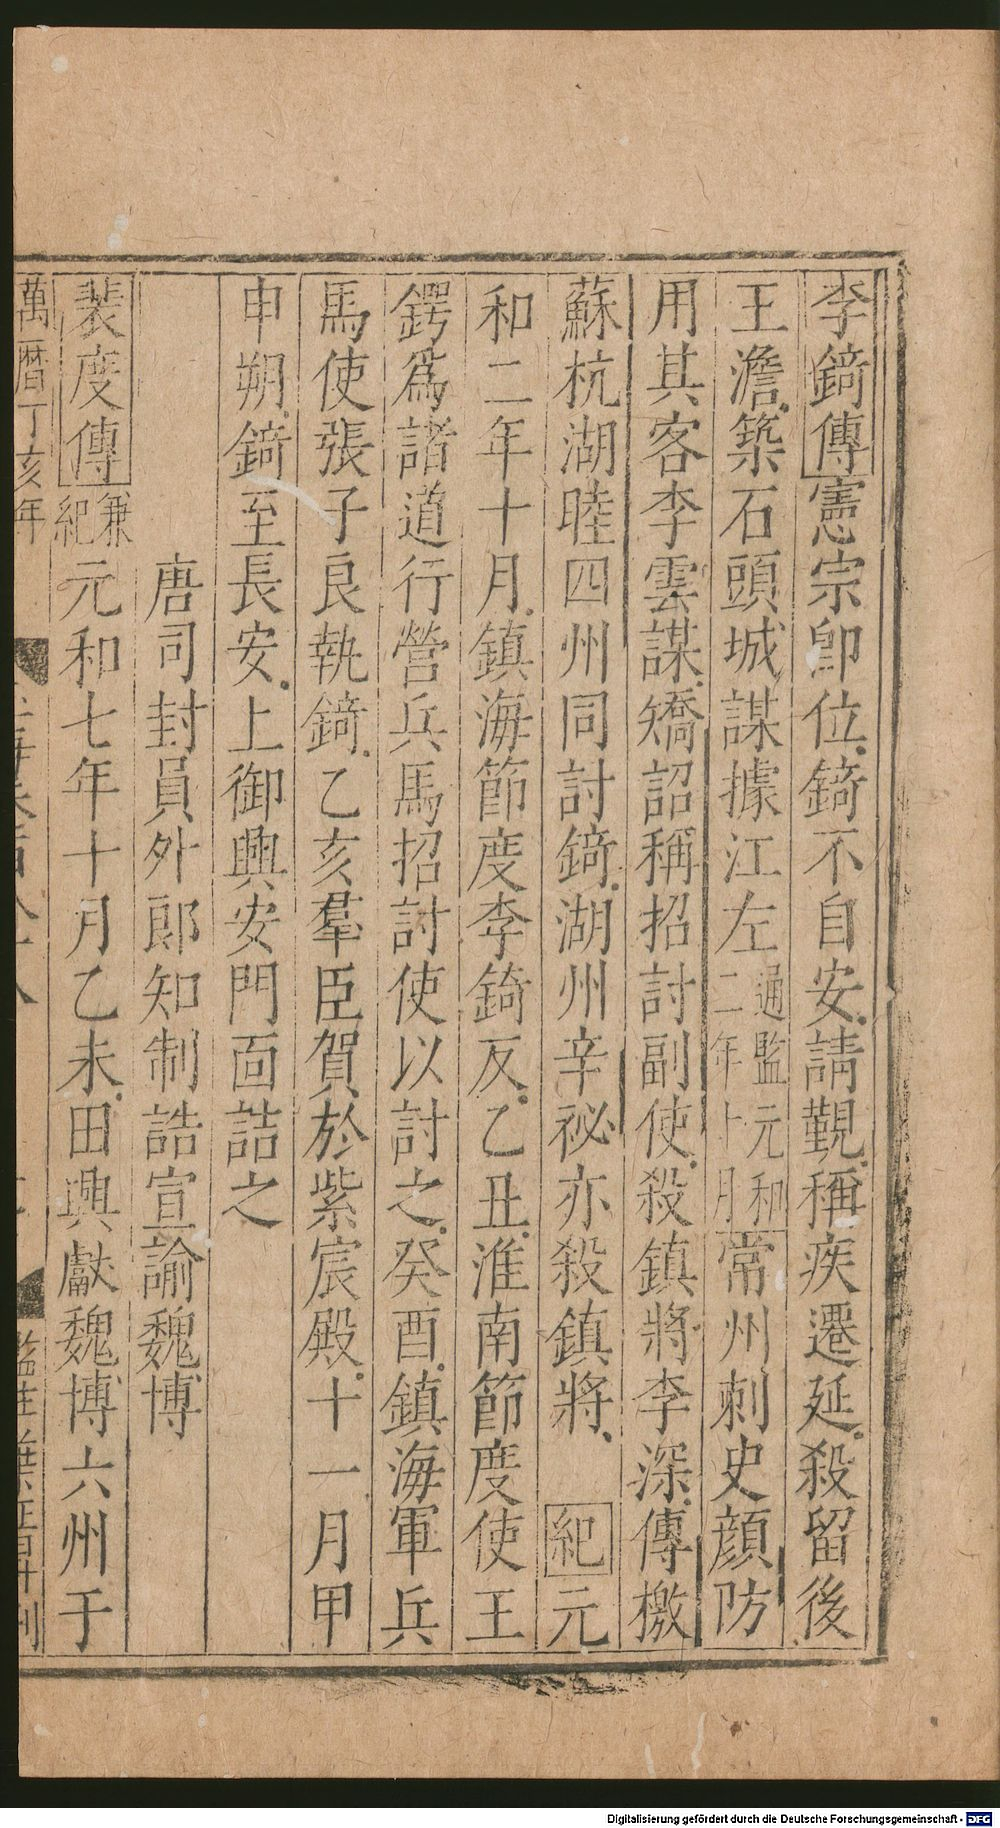 李錡傳憲宗卽位錡不自安請覲稱疾遷延殺留後
王澹築石頭城謀據江左通監元和二年十月常州刺史顔防
用其客李雲謀矯詔稱招討副使殺鎮將李深傳檄
蘇杭湖睦四州同討錡湖州辛祕亦殺鎮將紀元
和二年十月鎮海節度李錡反乙丑淮南節度使王
鍔爲諸道行營兵馬招討使以討之癸酉鎮海軍兵
馬使張子良執錡乙亥羣臣賀於紫宸殿十一月甲
申朔錡至長安上御興安門面詰之
唐司封員外郎知制誥宣諭魏博
裴度傳兼紀元和七年十月乙未田興獻魏博六州于
萬曆丁亥年
Digitalisierung gefördert durch die Deutsche Forschungsgemeinschaft - DFG